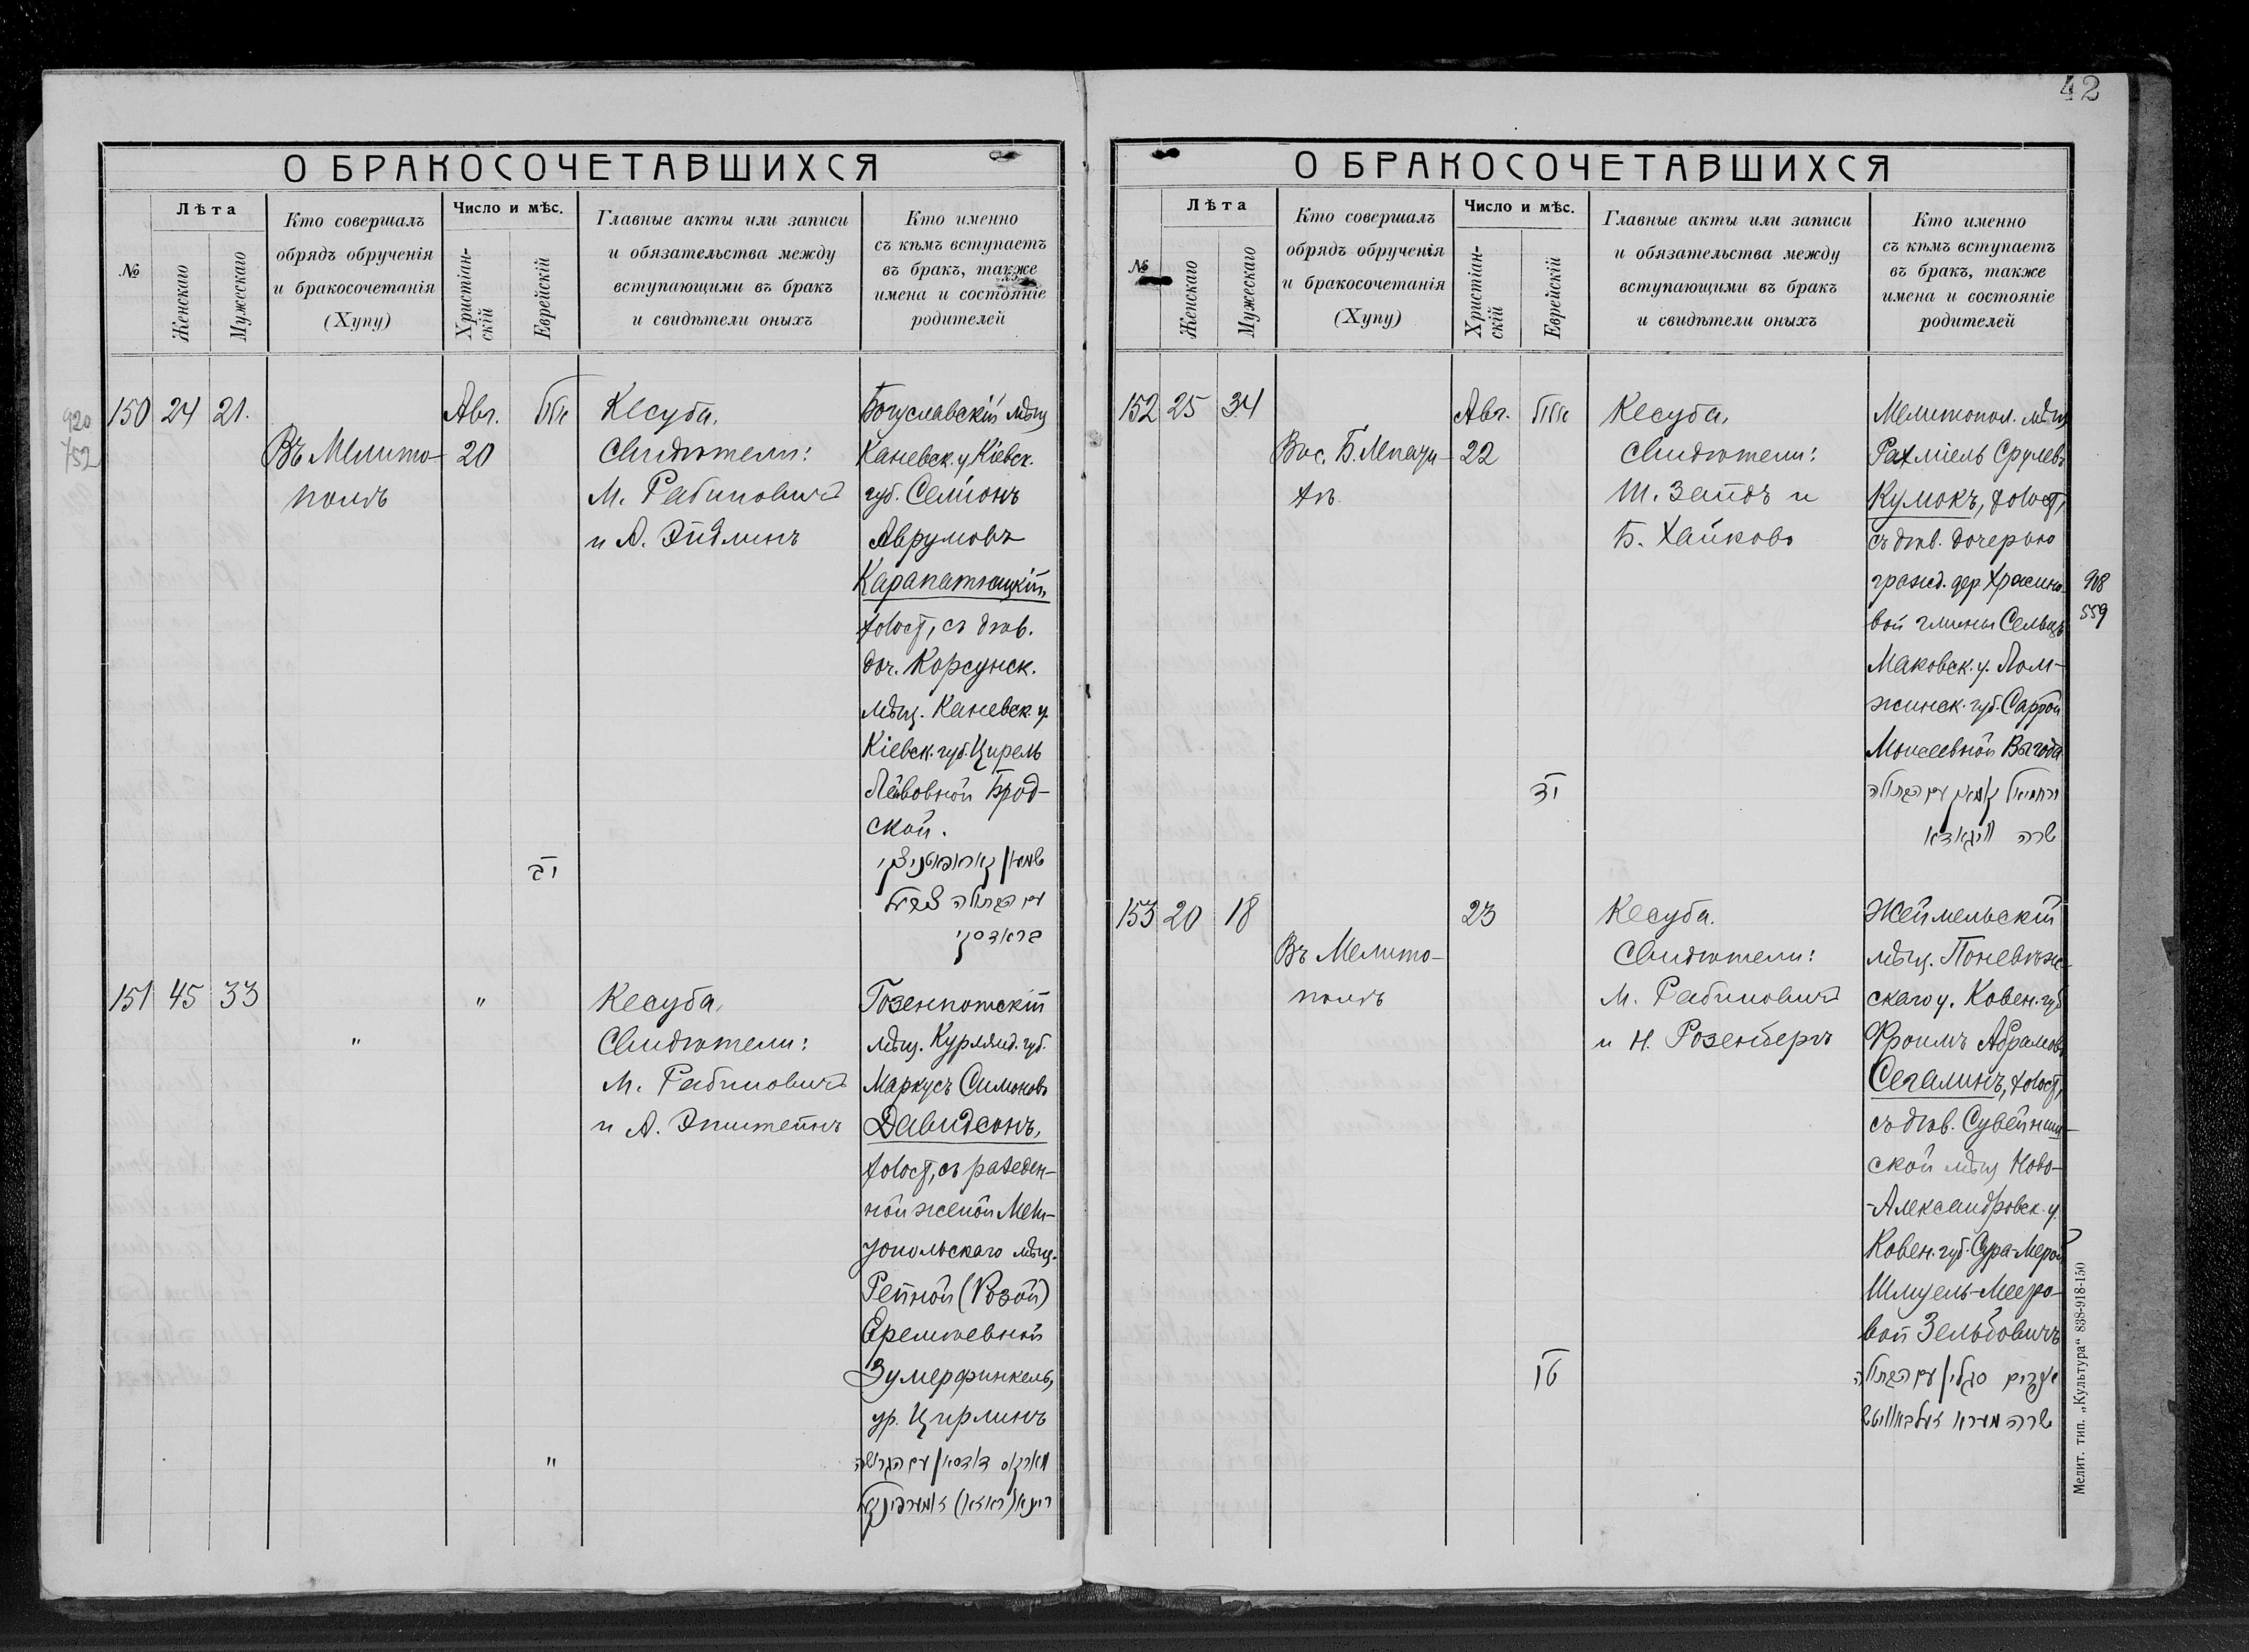 42
О БРАКОСОЧЕТАВШИХСЯ
№
Лѣта
Женскаго
Мужескаго
Кто совершалъ
обрядъ обрученія
и бракосочетанія
(Хупу)
Число и мѣс.
Христіан-
скій
Еврейскій
Главные акты или записи
и обязательства между
вступающими въ бракъ
и свидѣтели оныхъ
Кто именно
съ кѣмъ вступаетъ
въ бракъ, также
имена и состояніе
родителей
920
752
150 24 21.
Въ Мелито-
полѣ
Авг.
20
יב
Кесуба.
Свидѣтели:
М. Рабиновичъ
и А. Эйдлинъ
Богуславскій мѣщ
Каневск. у Кіевск.
губ. Селіонъ
Аврумовъ
Карапатницкій,
холост, съ дѣв.
доч. Корсунск.
мѣщ. Каневск. у.
Кіевск. губ. Цирель
Лейбовной Брод-
ской.
עם הבתולה
בראדסקי
151 45 33
"
"
"
Кесуба.
Свидѣтели:
М. Рабиновичъ
и А. Эпштейнъ
Газенпотскій
мѣщ. Курлянд. губ.
Маркусъ Симоновъ
Давидсонъ,
холост, съ разведен-
ной женой Мели-
топольскаго мѣщ.
Рейной (Розой)
Еремѣевной
Зумерфинкель,
ур. Цирлинъ
עם הגרושה
О БРАКОСОЧЕТАВШИХСЯ
№
Лѣта
Женскаго
Мужескаго
Кто совершалъ
обрядъ обрученія
и бракосочетанія
(Хупу)
Число и мѣс.
Христіан-
скій
Еврейскій
Главные акты или записи
и обязательства между
вступающими въ бракъ
и свидѣтели оныхъ
Кто именно
съ кѣмъ вступаетъ
въ бракъ, также
имена и состояніе
родителей
152 25 34
Въ с. Б. Лепати-
хѣ
Авг.
22
יד
Кесуба.
Свидѣтели:
Ш. Зайдъ и
Б. Хайковъ
Мелитопол. мѣщ
Рахміель Срулевъ
Кумокъ, холост,
съ дѣв. дочерью
гражд. дер.
вой глины Сельцъ
Маковск. у. Лом-
жинск. губ. Саррой
Моисеевной Выгода
עם הבתולה
שרה וויגאדא
908
559
153 20 18
Въ Мелито-
полѣ
23
טו
Кесуба.
Свидѣтели:
М. Рабиновичъ
и Н. Розенбергъ
Жеймельскій
мѣщ. Поневѣж-
скаго у. Ковен. губ
Фроимъ Абрамовъ
Сегалинъ, холост,
съ дѣв. Сувейниш-
ской мѣщ Ново-
-Александровск. у.
Ковен. губ. Сура-Мерой
Шмуель-Мееро-
вой Зельбовичъ
סגלין עם הבתולה
שרה מערא
Мелит. тип. „Культура“ 838-918-150